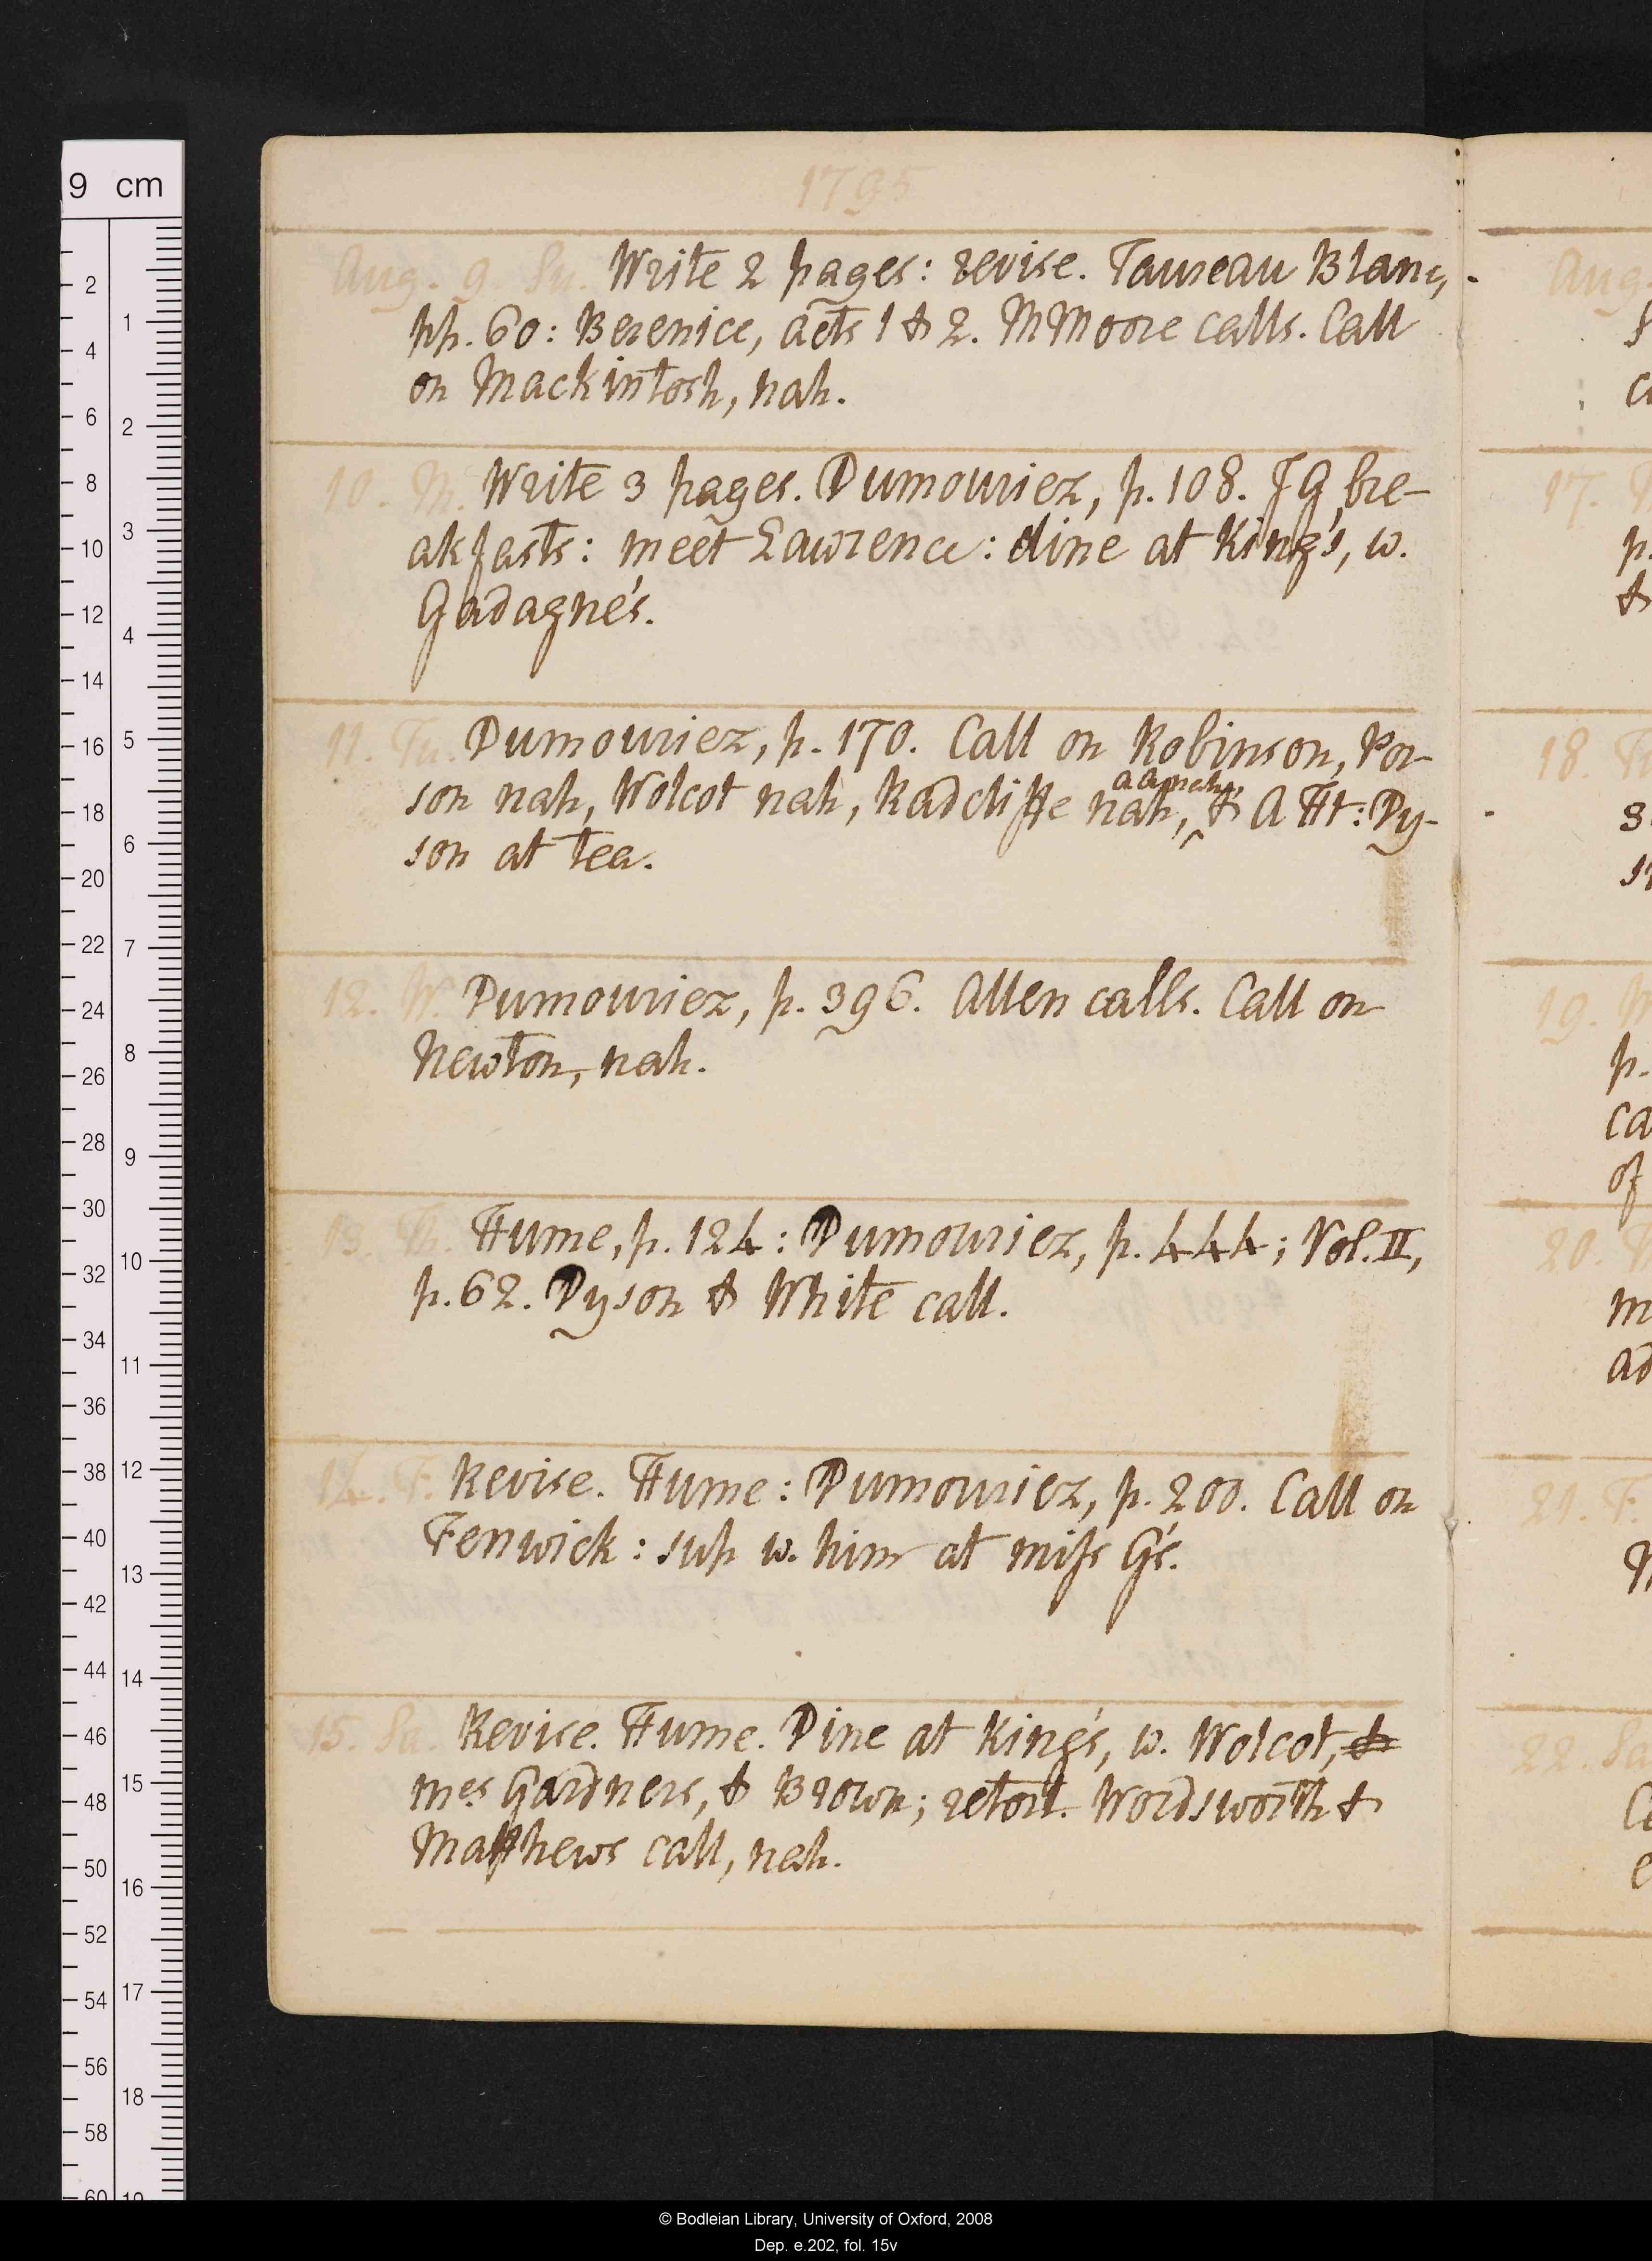 1795
Aug. 9. Su. Write 2 pages: revise. Taureau Blanc,
pp. 60: Berenice, acts 1 & 2. M Moore calls. Call
on Mackintosh, nah.
10. M. Write 3 pages. Dumouriez, p. 108. J G bre-
akfasts: meet Lawrence: dine at King's, w.
Gadagne's.
11. Tu. Dumouriez, p. 170. Call on Robinson, Por-
son nah, Wolcot nah, Radcliffe nah, & A Ht: Dy-
a a, nah,
son at tea.
12. W. Dumouriez, p. 396. Allen calls. Call on
Newton, nah.
13. Th. Hume, p. 124: Dumouriez, p. 444; Vol. II,
p. 62. Dyson & White call.
14. F. Revise. Hume: Dumouriez, p. 200. Call on
Fenwick: sup w. him at miss G's.
15. Sa. Revise. Hume. Dine at King's, w. Wolcot, &
mes Gardners, & Brown; retort. Wordsworth &
Matthews call, nah.
Aug.
17.
p.
&
18. Tu
3
19.
p.
ca
of
20.
m
ad
21. F.
22. Sa
9 cm
2
4
6
8
10
12
14
16
18
20
22
24
26
28
30
32
34
36
38
40
42
44
46
48
50
52
54
56
58
60
1
2
3
4
5
6
7
8
9
10
11
12
13
14
15
16
17
18
19
© Bodleian Library, University of Oxford, 2008
Dep. e.202, fol. 15v